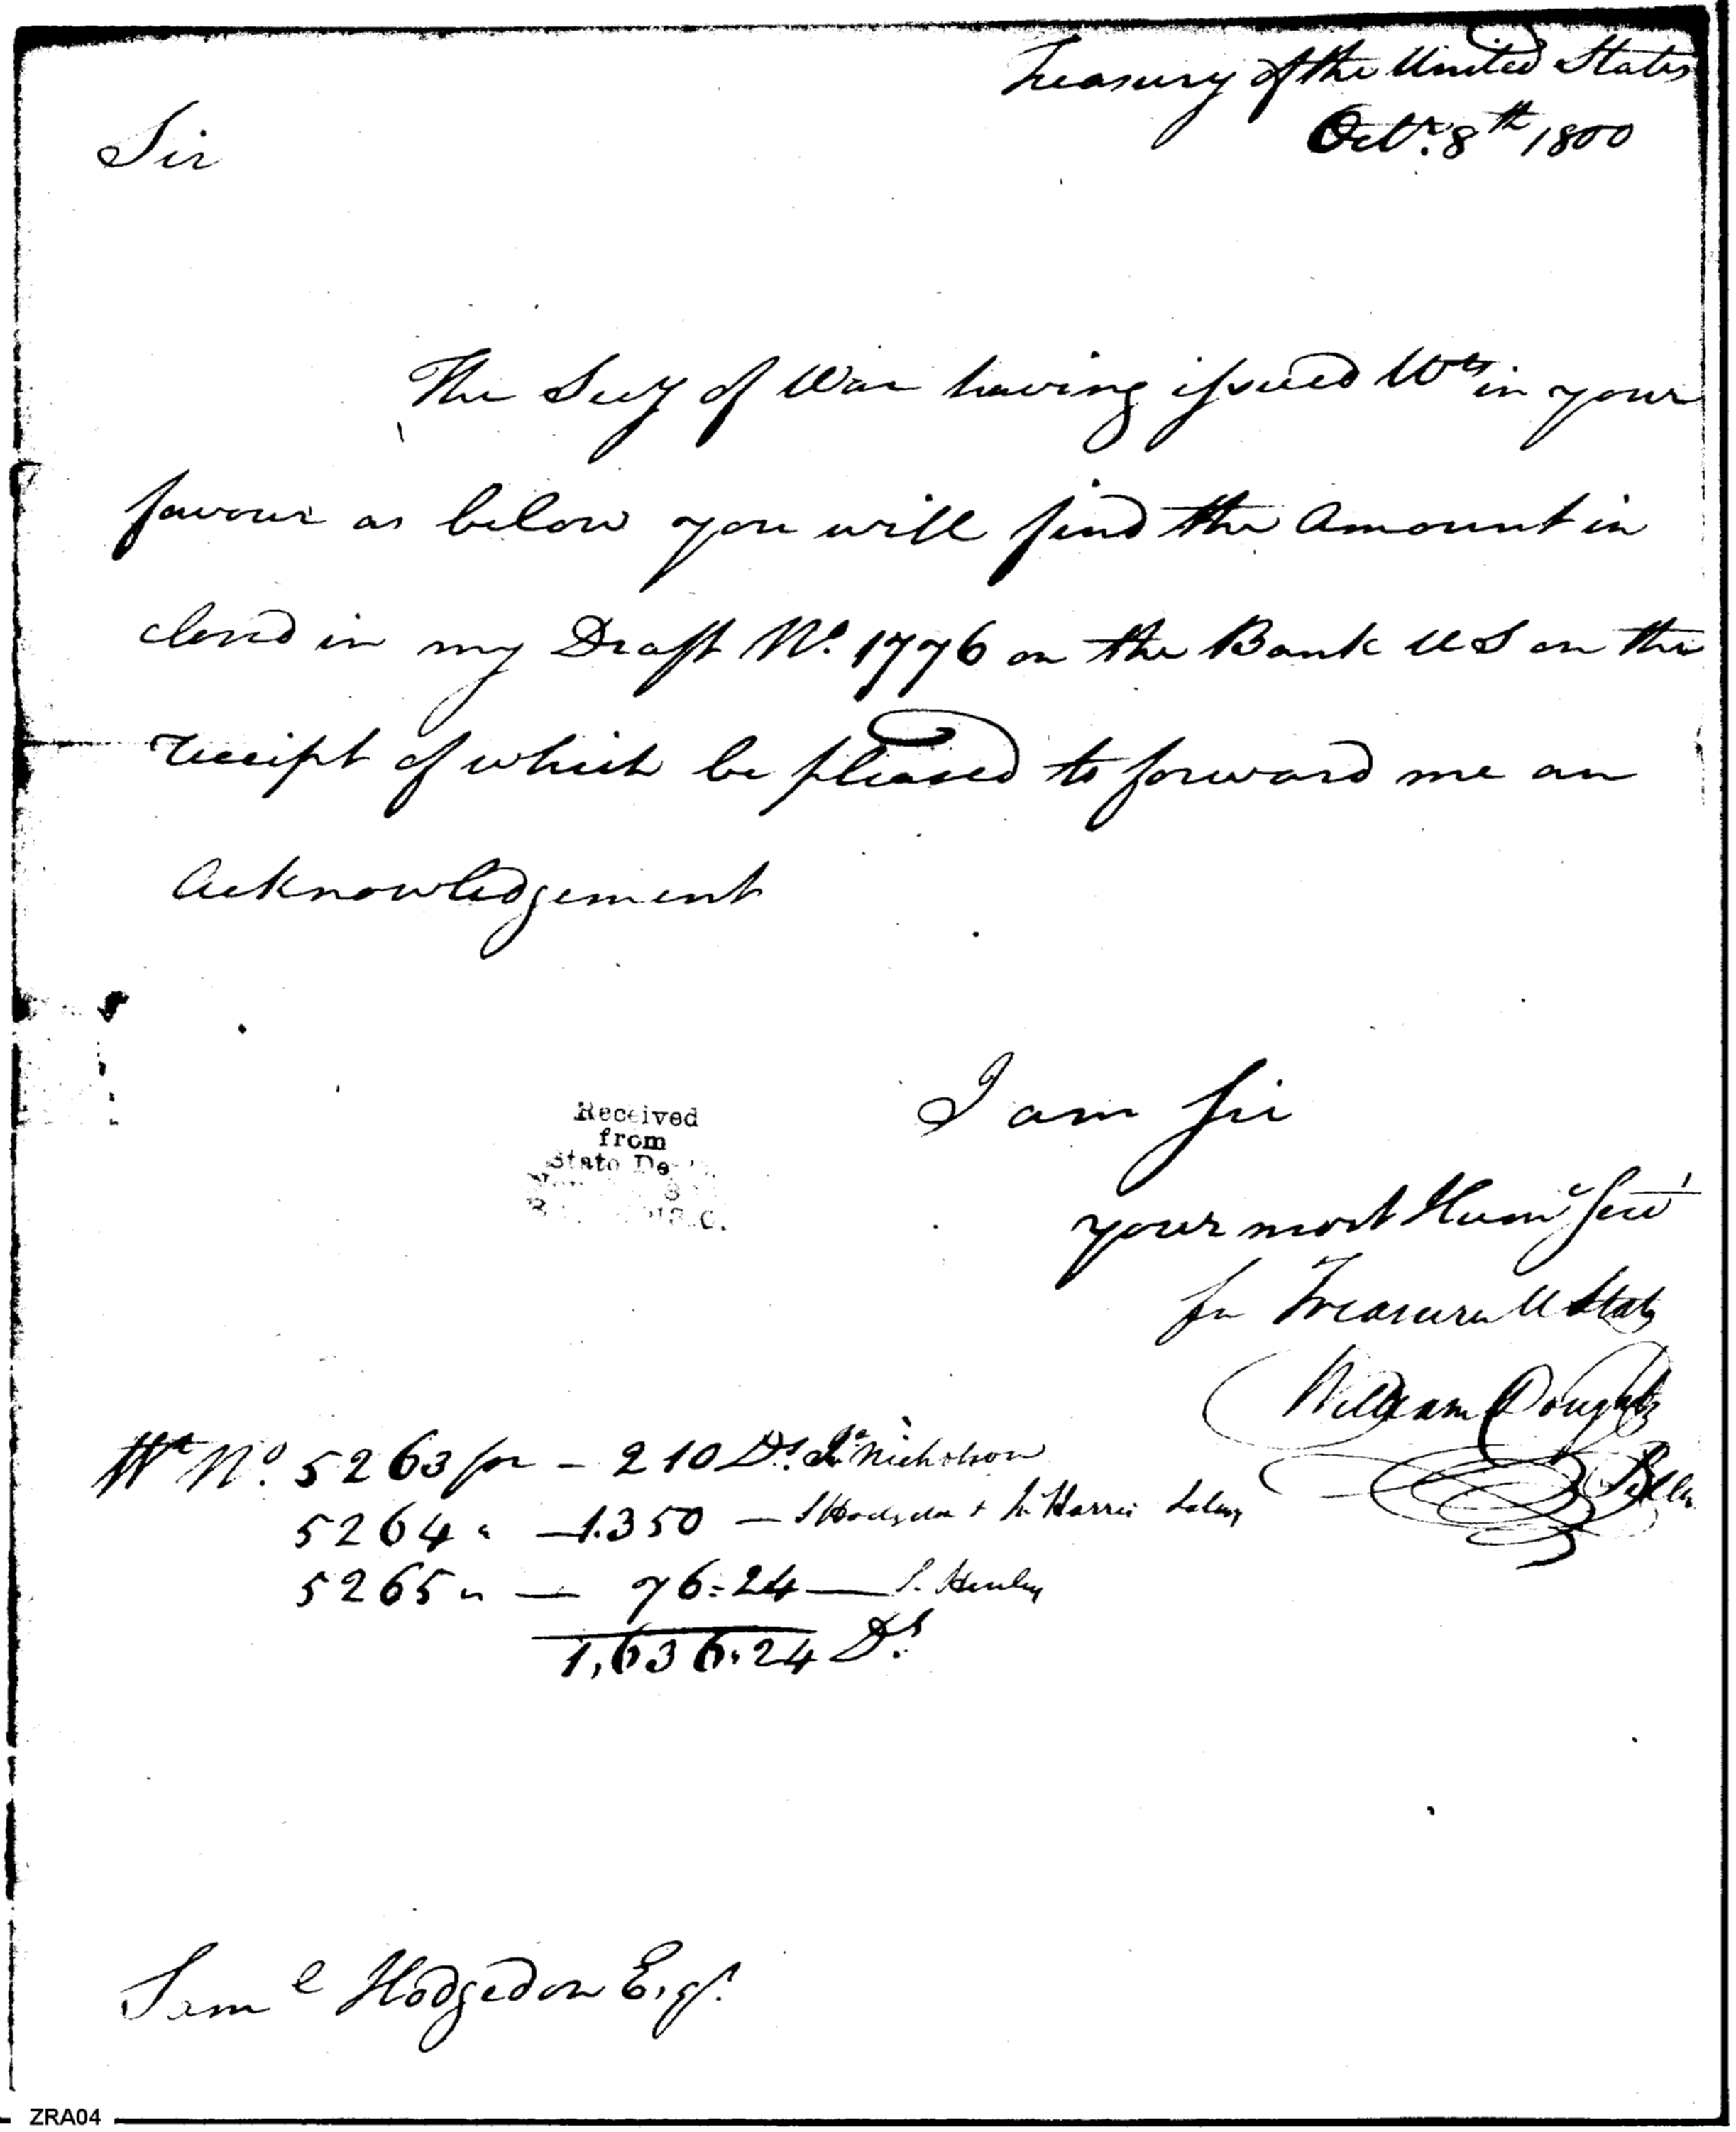 Treasury of the United States
Octr. 8th 1800
Sir
The Secy of War having issued Wts in your
favour as below you will find the Amount in
closed in my Draft No. 1776 on the Bank U S on the
receipt of which be pleased to forward me an
Acknowledgement
I am Sir
your most Humle Servt
for Treasurer U States
William Doughty
Received
from
State De
Wt No. 5263 for - 210 Ds. Nicholson
5264 " - 1.350 - S Hodgsdon + Harris
5265 " - 76.24 - Henley
1,636.24 Ds
Saml Hodgsdon Esqr.
ZRA04